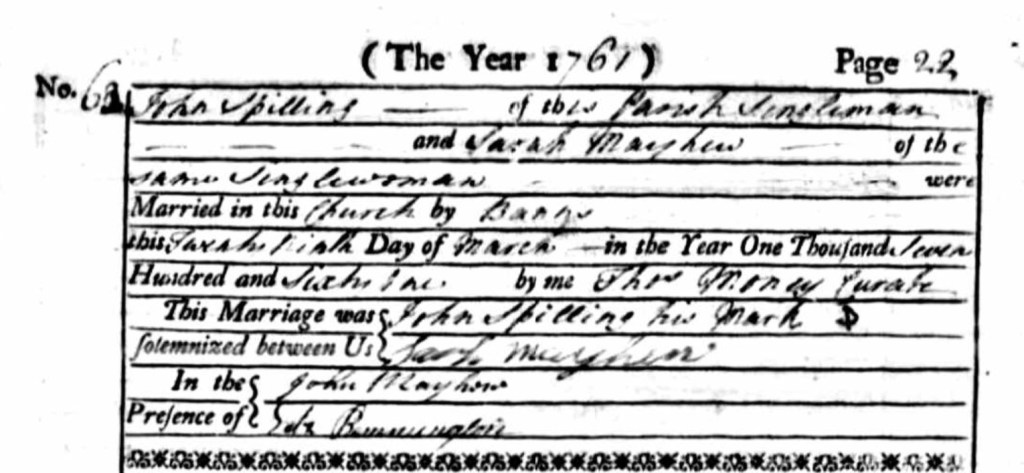 (The Year 1761) Page 22
No. 62
John Spilling of this Parish Singleman
and Sarah Mayhew of the
same Singlewoman were
Married in this Church by Banns
this Day of March in the Year One Thouſand Seven
Hundred and Sixty One by me Thos Money Curate
This Marriage was John Spilling his Mark
ſolemnized between Us Sarah Mayhew
In the John Mayhow
Preſence of